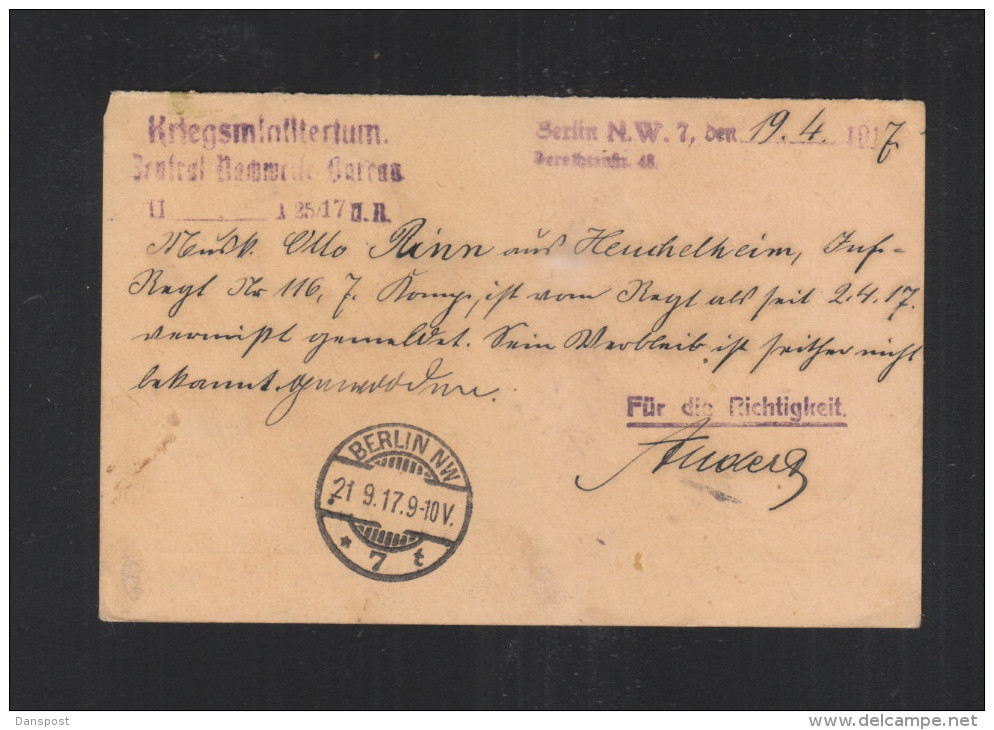 Kriegsministerium. Berlin N.W. 7, den 19. 4. 1917
Zentral Nachweise Bureau Dorotheenstr. 48.
II 1 25/17 U.R.
Musk. Otto Rinn aus Heuchelheim, Inf-
Regt Nr 116, 7. Komp, ist vom Regt als seit 2.4.17.
vermißt gemeldet. Sein Verbleib ist seither nicht
bekannt geworden.
Für die Richtigkeit.
BERLIN NW
21 9.17.9-10V.
* 7 t
Danspost
www.delcampe.net